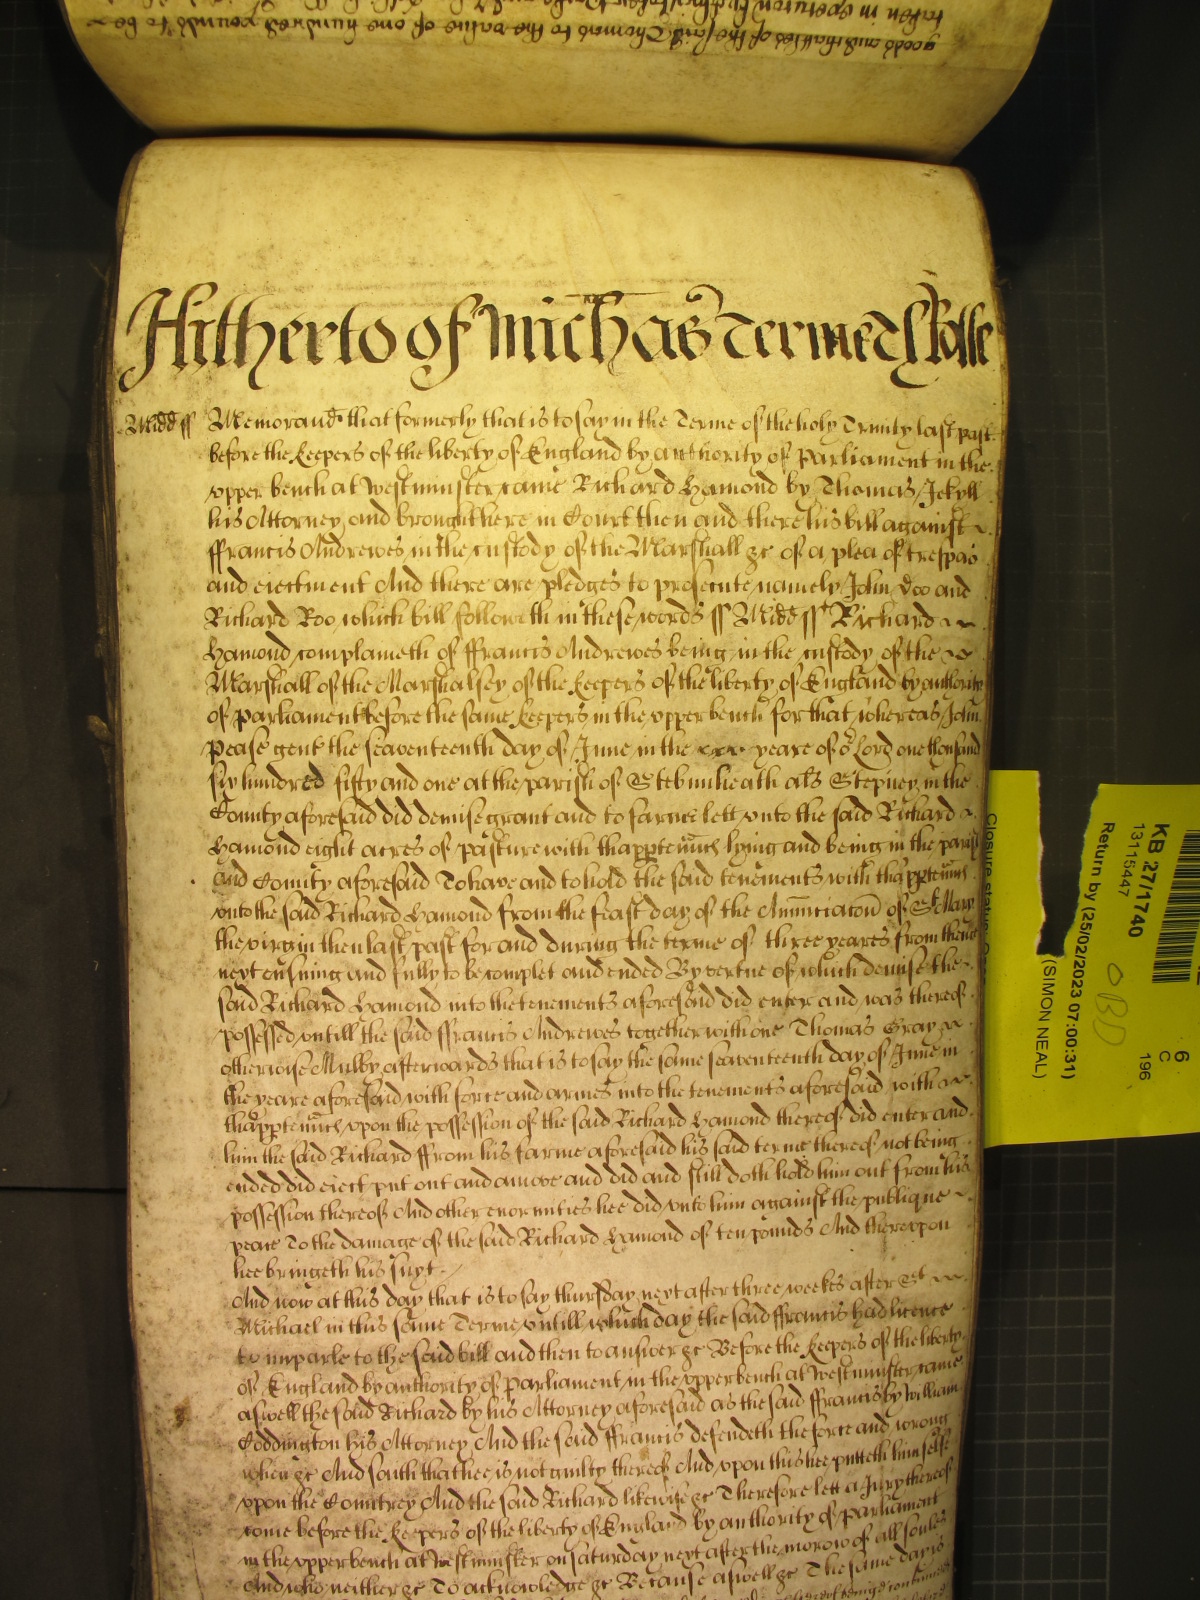 goods and chattles of the said Thomas to the value of one hundred pounds to be
taken in
Hitherto of Michās Terme
Midd ss Memorand that formerly that is to say in the Terme of the holy Trinity last past
before the keepers of the liberty of England by authority of Parliament in the
vpper bench at Westminster came Richard Hamond by Thomas Jekyll
his Attorney and brought here in Court then and there his bill against
ffrancis Andrewes in the custody of the Marshall &c of a plea of trespas
and eiectment And there are pledges to prosecute namely John Doo and
Richard Roo which bill followeth in these words ss Midd ss Richard
Hamond complaineth of ffrancis Andrewes being in the custody of the
Marshall of the Marshalsey of the keepers of the liberty of England by authority
of Parliament before the same keepers in the vpper bench for that whereas John
Pease gent the seaventeenth day of June in the yeare of oʳ Lord one thousand
six hundred fifty and one at the parish of Stebunheath als Stepney in the
County aforesaid did demise grant and to farme lett vnto the said Richard
Hamond eight acres of pasture with thapptennces lying and being in the parish
and County aforesaid To have and to hold the said tenements with thapptennces
vnto the said Richard Hamond from the feast day of the Annunciacon of St Mary
the virgin then last past for and during the terme of three yeares from thence
next ensuing and fully to be complet and ended By vertue of which demise the
said Richard Hamond into the tenements aforesaid did enter and was thereof
possessed vntill the said ffrancis Andrewes together with one Thomas Gray
otherwise Mulby afterwards that is to say the same seaventeenth day of June in
the yeare aforesaid with force and armes into the tenements aforesaid with
thapptennces vpon the possession of the said Richard Hamond thereof did enter and
him the said Richard ffrom his farme aforesaid his said terme thereof not being
ended did eiect put out and amove and did and still doth hold him out from his
possession thereof And other enormities hee did vnto him against the publique
peace To the damage of the said Richard Hamond of ten pounds And therevpon
hee bringeth his suyt
And now at this day that is to say thursday next after three weekes after St
Michael in this same Terme vntill which day the said ffrancis had licence
to imparle to the said bill and then to answer &c Before the keepers of the liberty
of England by authority of Parliament in the vpper bench at Westminster came
aswell the said Richard by his Attorney aforesaid as the said ffrancis by William
Coddington his Attorney And the said ffrancis defendeth the force and wrong
when &c And saith that hee is not guilty thereof And vpon this hee putteth himselfe
vpon the Countrey And the said Richard likewise &c Therefore lett a Jury thereof
come before the keepers of the liberty of England by authority of Parliament
in the vpper bench at Westminster on saturday next after the morow of all soules
And who neither &c To acknowledge &c Because aswell &c The same day is
KB 27/1740
13115447
Return by (25/02/2023 07:00:31)
(SIMON NEAL)
Closure status:
6
C
196